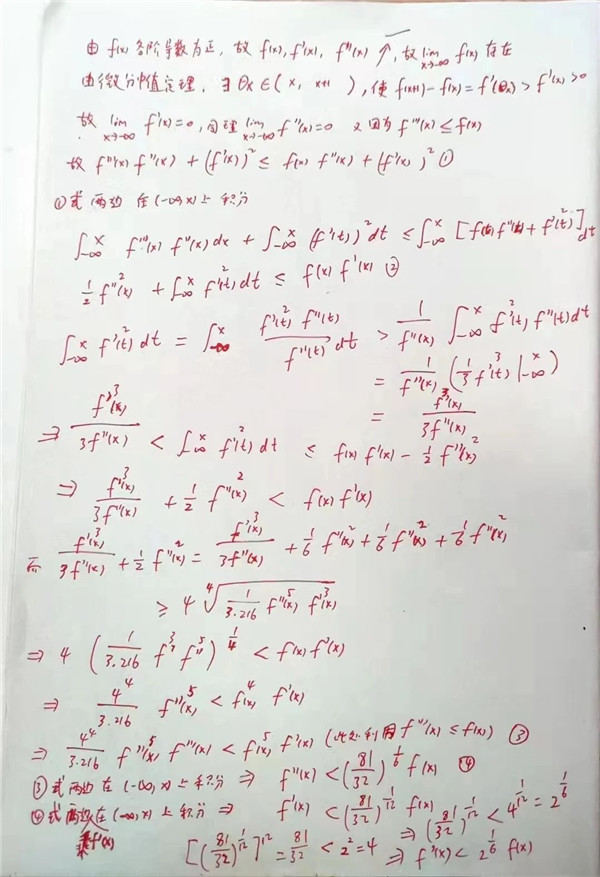 由 f(x) 各阶导数为正，故 f(x), f'(x), f''(x) ↑, 故 lim_{x→-∞} f(x) 存在
由微分中值定理，∃ θx ∈ (x, x+1), 使 f(x+1) - f(x) = f'(θx) > f'(x) > 0
故 lim_{x→-∞} f'(x) = 0, 同理 lim_{x→-∞} f''(x) = 0 又因为 f'''(x) ≤ f(x)
故 f'''(x) f''(x) + (f'(x))^2 ≤ f(x) f''(x) + (f'(x))^2 ①
①式两边在 (-∞, x) 上积分
∫_{-∞}^x f'''(x) f''(x) dx + ∫_{-∞}^x (f'(t))^2 dt ≤ ∫_{-∞}^x [f(t) f''(t) + f'(t)^2] dt
1/2 f''(x)^2 + ∫_{-∞}^x f'(t)^2 dt ≤ f(x) f'(x) ②
∫_{-∞}^x f'(t)^2 dt = ∫_{-∞}^x f'(t)^2 f''(t) / f''(t) dt > 1/f''(x) ∫_{-∞}^x f'(t)^2 f''(t) dt
= 1/f''(x) (1/3 f'(t)^3 |_{-∞}^x)
= f'(x)^3 / 3f''(x)
⇒ f'(x)^3 / 3f''(x) < ∫_{-∞}^x f'(t)^2 dt ≤ f(x) f'(x) - 1/2 f''(x)^2
⇒ f'(x)^3 / 3f''(x) + 1/2 f''(x)^2 < f(x) f'(x)
而 f'(x)^3 / 3f''(x) + 1/2 f''(x)^2 = f'(x)^3 / 3f''(x) + 1/6 f''(x)^2 + 1/6 f''(x)^2 + 1/6 f''(x)^2
≥ 4 ∜(1/3·216 f''(x)^5 f'(x)^3)
⇒ 4 (1/3·216 f'^3 f''^5)^{1/4} < f(x) f'(x)
⇒ 4^4/3·216 f''(x)^5 < f(x)^4 f'(x)
⇒ 4^4/3·216 f''(x)^5 f'''(x) < f(x)^5 f'(x) (此处利用 f'''(x) ≤ f(x)) ③
③式两边在 (-∞, x) 上积分 ⇒ f''(x) < (81/32)^{1/6} f(x) ④
④式两边在 (-∞, x) 上积分 ⇒ f'(x) < (81/32)^{1/12} f(x) ⇒ (81/32)^{1/12} < 4^{1/12} = 2^{1/6}
乘f'(x) [(81/32)^{1/12}]^{12} = 81/32 < 2^2 = 4 ⇒ f'(x) < 2^{1/6} f(x)